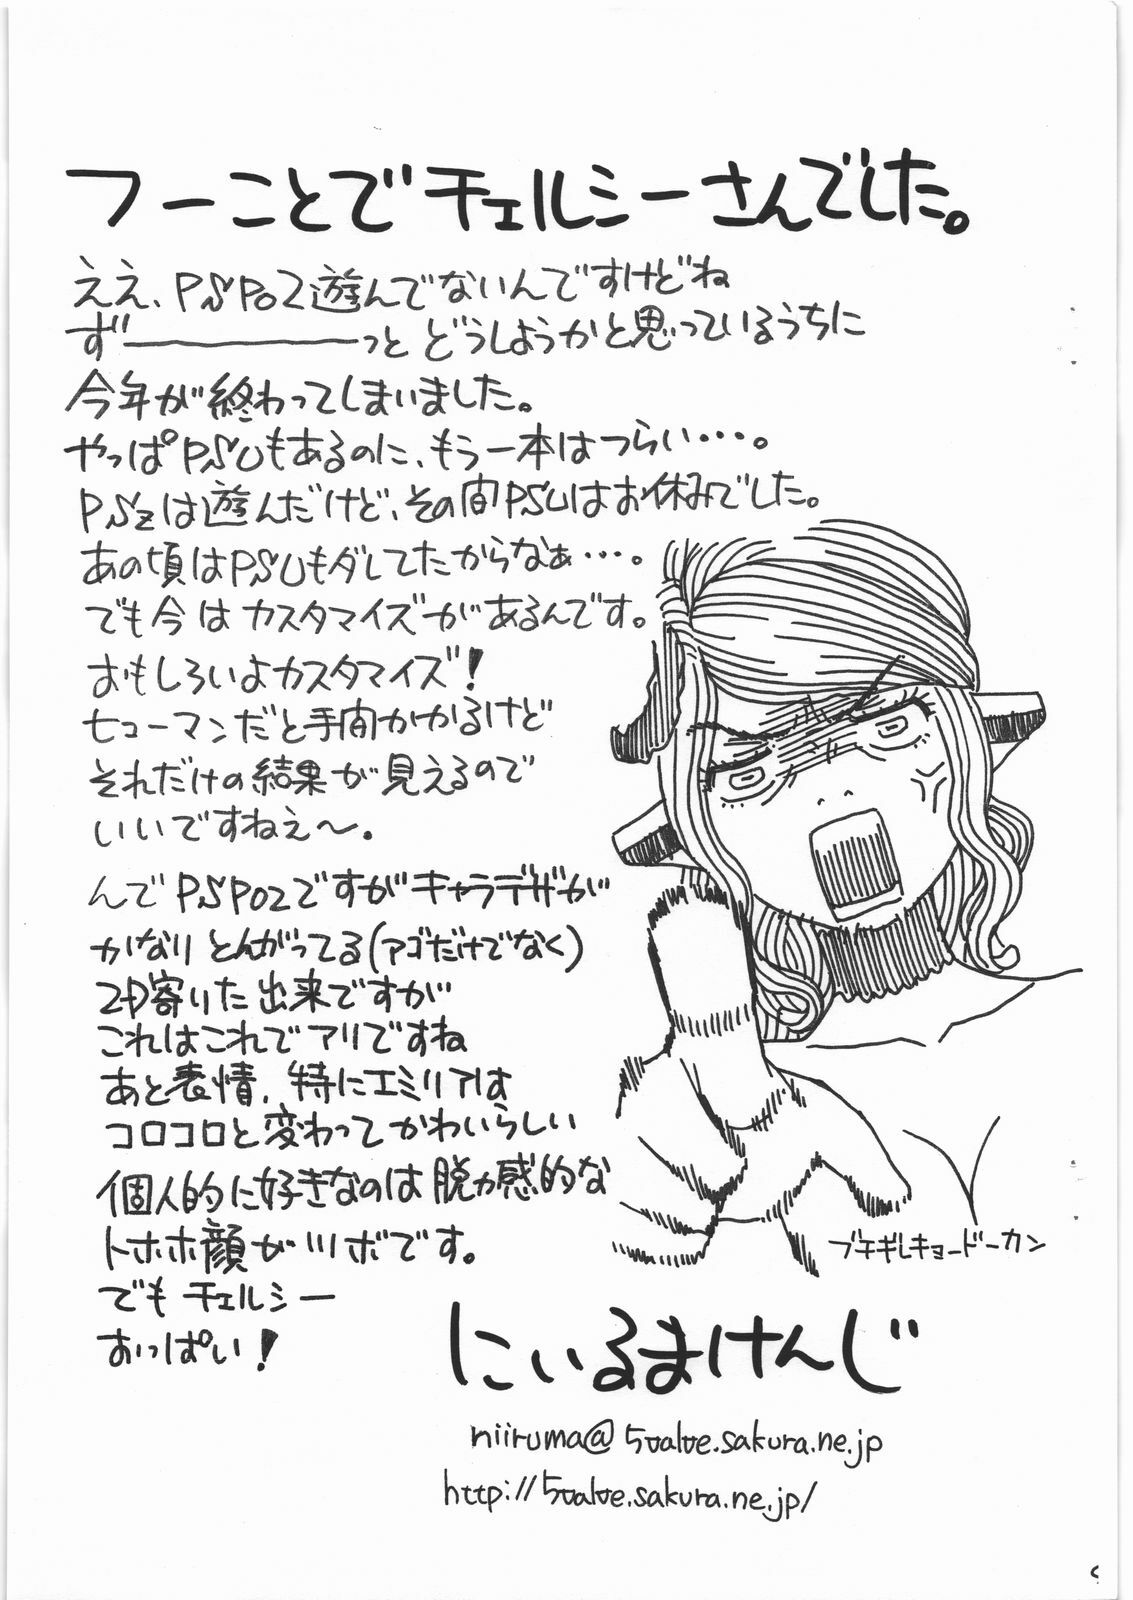 フーことでチェルシーさんでした。
ええ、PSPO2遊んでないんですけどね
ず――――っと どうしようかと思っているうちに
今年が終わってしまいました。
やっぱPSUもあるのに、もう一本はつらい・・・。
PSZは遊んだけど、その間PSUはお休みでした。
あの頃はPSUもダレてたからなぁ・・・。
でも今はカスタマイズがあるんです。
おもしろいよカスタマイズ!
ヒューマンだと手間かかるけど
それだけの結果が見えるので
いいですねぇ～。
んでPSPO2ですがキャラデザが
かなりとんがってる(アゴだけでなく)
2D寄りた出来ですが
これはこれでアリですね
あと表情、特にエミリアは
コロコロと変わってかわいらしい
個人的に好きなのは脱力感的な
トホホ顔がツボです。
でもチェルシー
おっぱい!
ブチギレキョードーカン
にいるまけんじ
niiruma@5valve.sakura.ne.jp
http://5valve.sakura.ne.jp/